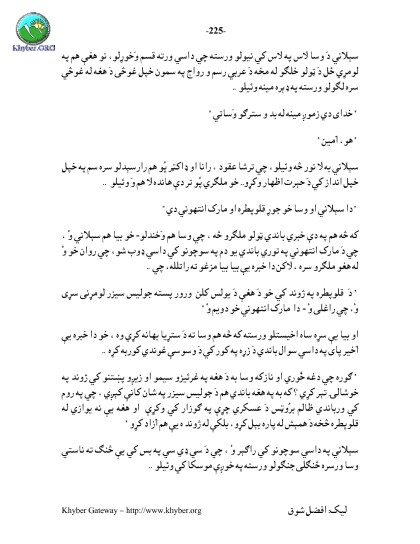 -225-
Khyber.ORG
سيلاني دَ وسا لاس په لاس کي نيولو ورسته چي داسي ورته قسم وَخوړلو ، نو هغې هم په
لومړي ځل دَ ټولو خلګو له مخه دَ عربي رسم و رواج په سمون خپل غوښى دَ هغه له غوښي
سره لګولو ورسته په ډېره مينه وئيلو ..
" خداى دي زموږ مينه له بد و سترګو وَساتي "
" هو ، آمين "
سيلاني به لا نور څه وئيلو ، چي ترشا عقود ، رانا او ډاکټر پُو هم رارسيدلو سره سم په خپل
خپل انداز کي دَ حيرت اظهار وکړو.. خو ملګري پُو تر دې هانده لا هم وَ وئيلو ..
" دا سيلاني او وسا خو جوړ قلوپطره او مارک انتهوني دي "
که څه هم په دې خبري باندي ټولو ملګرو څه ، چي وسا هم وَخندلو- خو بيا هم سيلاني وُ ،
چي دَ مارک انتهوني په توري باندي يو دم په سوچونو کي داسي ډوب شو ، چي روان خو وُ
له هغو ملګرو سره ، لاکن دا خبره يې بيا بيا مزغو ته راتلله، چي ..
" دَ قلوپطره په ژوند کي خو دَ هغې دَ يولس کلن ورور پسته جوليس سيزر لومړنى سړى
وُ، چي راغلى وُ - دا مارک انتهوني خو دويم وُ "
او بيا يې سړه ساه اخيستلو ورسته که څه هم وسا ته دَ ستړيا بهانه کړې وه ، خو دا خبره يې
آخير پاى په داسي سوال باندي دَ زړه په کور کي دَ وسوسې غوندي کوربه کړه ..
" ګوره چي دغه ځوري او نازکه وسا به دَ هغه په غرئيزو سيمو او زيږو پښتنو کي ژوند په
خوشالۍ تېر کړي ؟ که به په هغه باندي هم دَ جوليس سيزر په شان کانې کېږي ، چي په روم
کي ورباندي ظالم بروُټس دَ عسکري چړې په ګوزار کي وکړې او هغه يې نه يوازي له
قلوپطره څخه دَ همېش له پاره بېل کړو ، بلکي له ژونده يې هم آزاد کړو "
سيلاني په داسي سوچونو کي راګېر وُ ، چي دَ سي ډي سي په بس کي يې څنګ ته ناستي
وسا ورسره څنګلى جنګولو ورسته په خوږې موسکا کي وئيلو ..
Khyber Gateway – http://www.khyber.org
ليک: افضل شوق